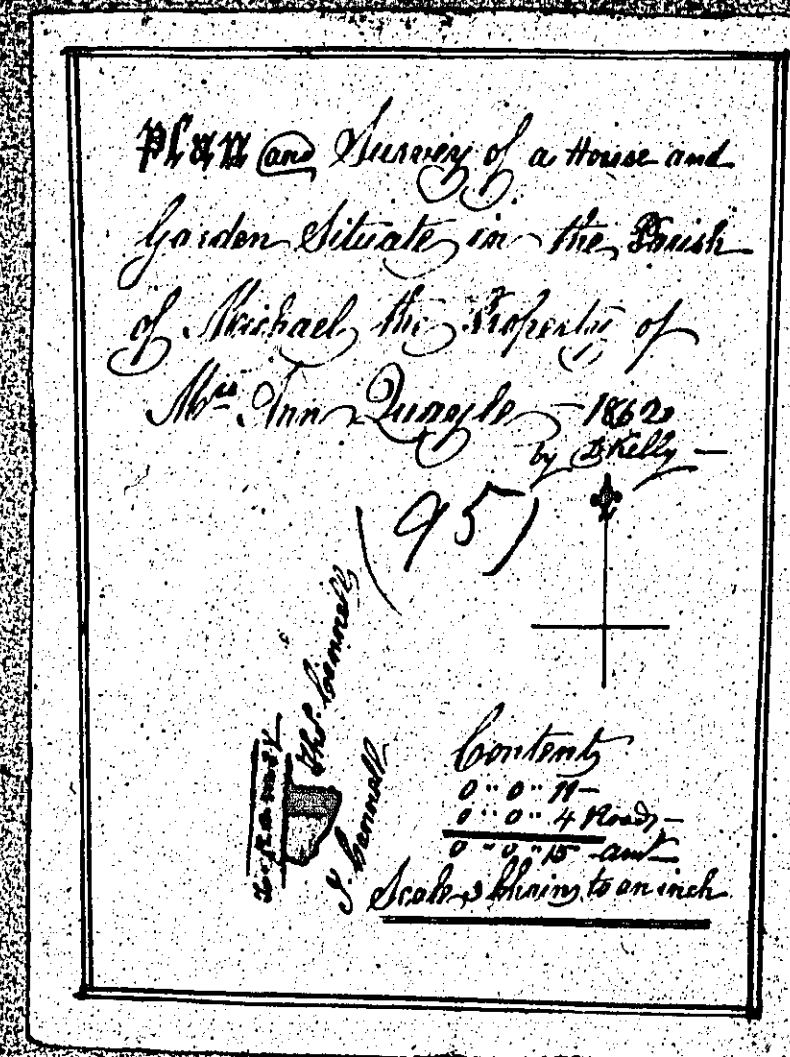 Plan and Survey of a House and
Garden Situate in the Parish
of Michael the Property of
Mrs Ann Quayle — 1862
by D Kelly —
(95)
Thos. Cannell
To Ramsey
J. Cannell
Content
0 " 0 " 11 —
0 " 0 " 4 Roads —
0 " 0 " 15 amt
Scale 3 Chains to an inch